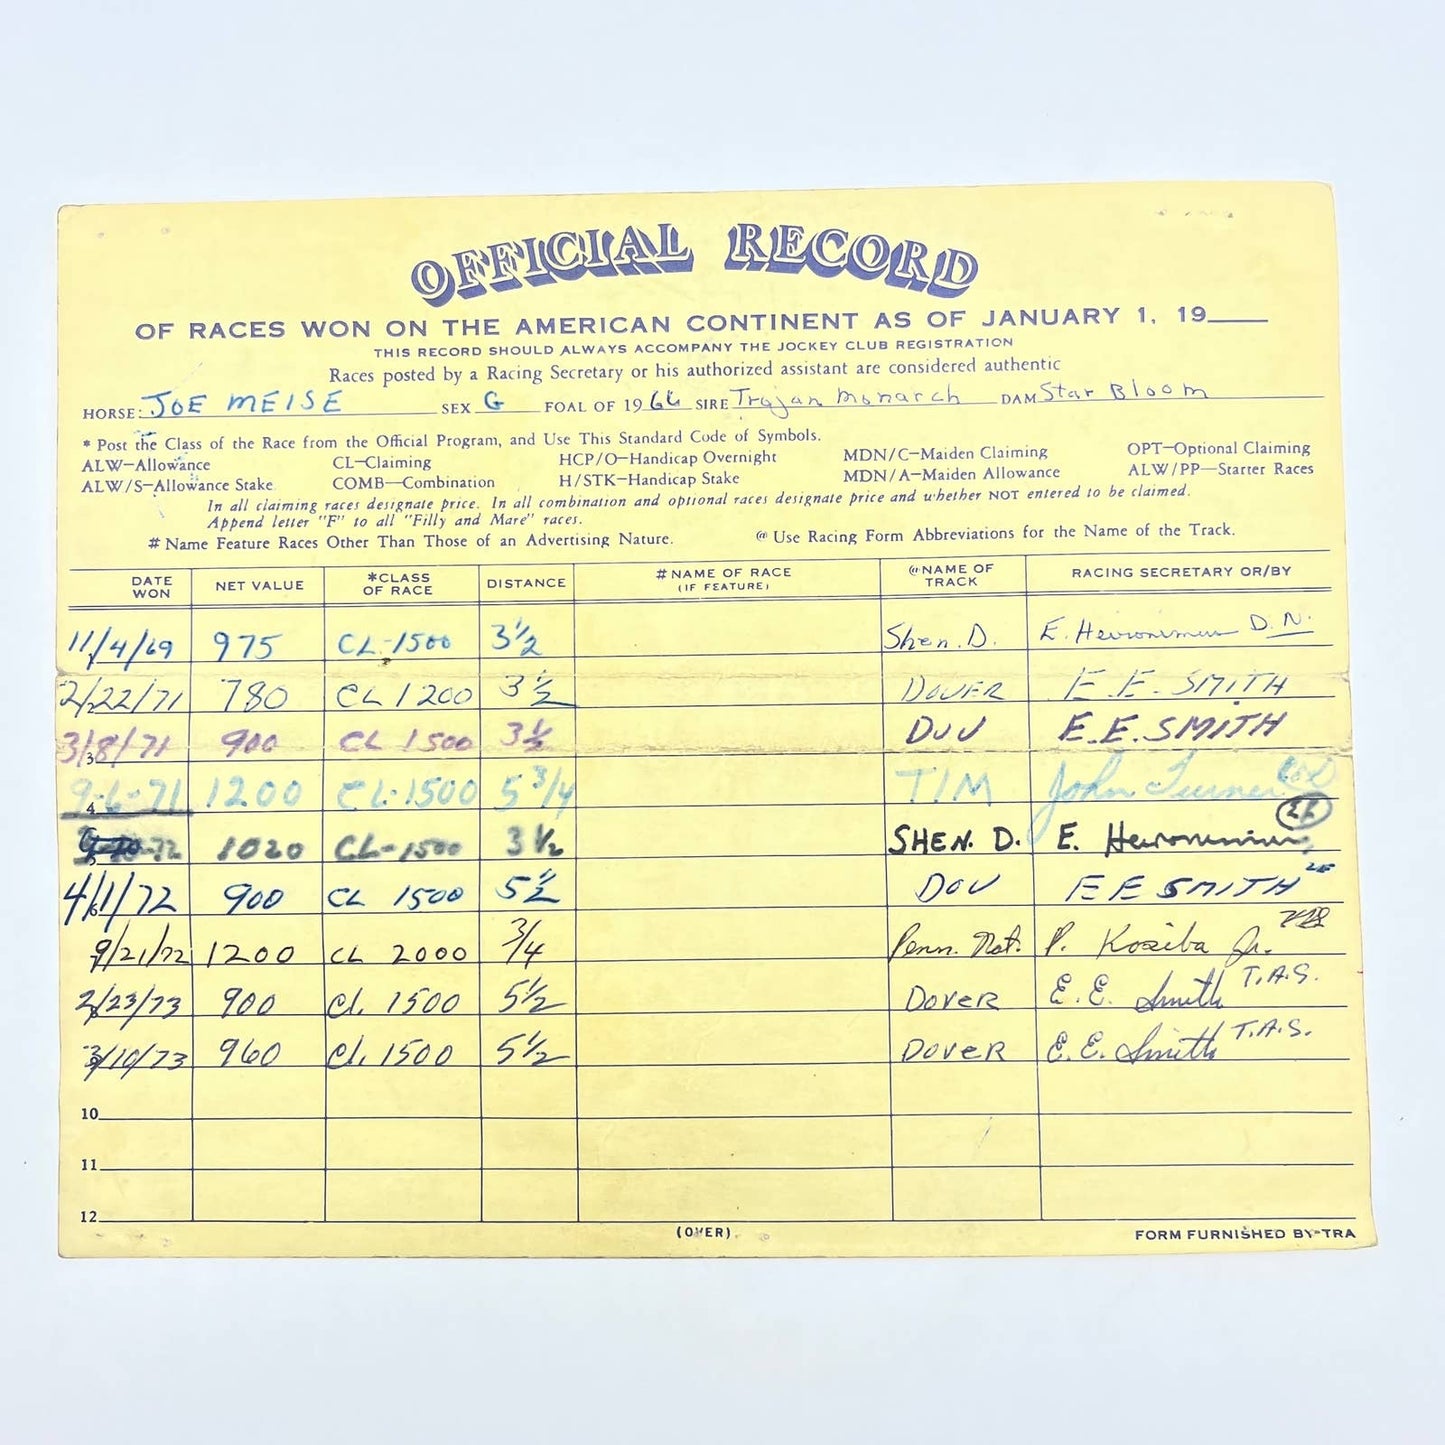 OFFICIAL RECORD
OF RACES WON ON THE AMERICAN CONTINENT AS OF JANUARY 1, 19
THIS RECORD SHOULD ALWAYS ACCOMPANY THE JOCKEY CLUB REGISTRATION
Races posted by a Racing Secretary or his authorized assistant are considered authentic
HORSE: JOE MEISE SEX G FOAL OF 1966 SIRE Trojan Monarch DAM Star Bloom
* Post the Class of the Race from the Official Program, and Use This Standard Code of Symbols.
ALW—Allowance CL—Claiming HCP/O—Handicap Overnight MDN/C—Maiden Claiming OPT—Optional Claiming
ALW/S—Allowance Stake COMB—Combination H/STK—Handicap Stake MDN/A—Maiden Allowance ALW/PP—Starter Races
In all claiming races designate price. In all combination and optional races designate price and whether NOT entered to be claimed.
Append letter "F" to all "Filly and Mare" races.
# Name Feature Races Other Than Those of an Advertising Nature. @ Use Racing Form Abbreviations for the Name of the Track.
DATE WON NET VALUE *CLASS OF RACE DISTANCE #NAME OF RACE (IF FEATURE) @NAME OF TRACK RACING SECRETARY OR/BY
11/4/69 975 CL-1500 3 1/2 Shen. D. E. D.N.
2/22/71 780 CL 1200 3 1/2 DOVER E. E. SMITH
3 3/8/71 900 CL 1500 3 1/2 DOV E. E. SMITH
4 9-6-71 1200 CL-1500 5 3/4 TIM John Turner
72 1020 CL-1500 3 1/2 SHEN. D. E.
6 4/1/72 900 CL 1500 5 1/2 DOV E E SMITH
9/21/72 1200 CL 2000 3/4 Penn. Nat. P. Koziba Jr.
2/23/73 900 Cl. 1500 5 1/2 DOVER E. E. Smith T.A.S.
3/10/73 960 Cl. 1500 5 1/2 DOVER E. E. Smith T.A.S.
10
11
12
(OVER)
FORM FURNISHED BY TRA